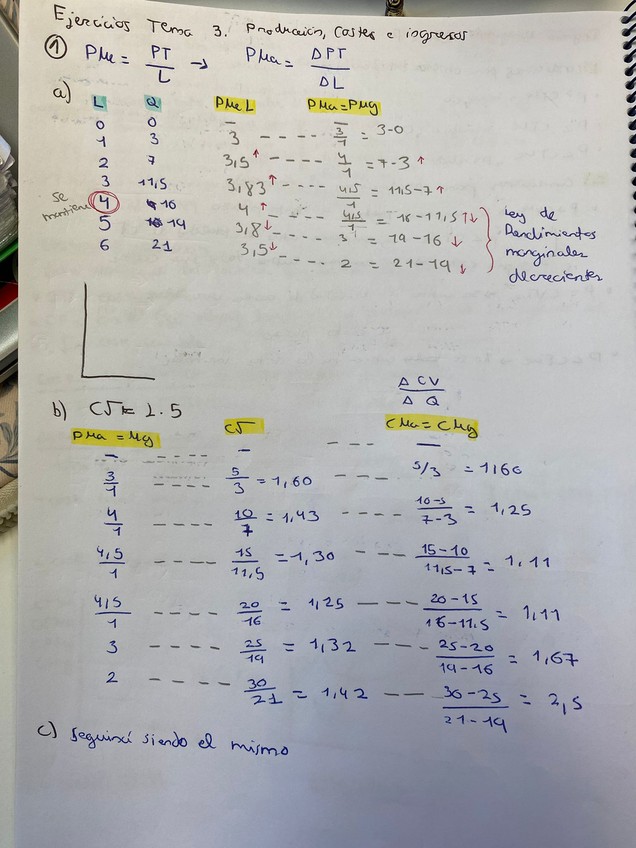 Ejercicios Tema 3. Producción, Costes e ingresos
① PMe = PT/L → PMa = ΔPT/ΔL
a)
L Q PMeL PMa=PMg
0 0 — —
1 3 3 ---- 3/1 = 3-0
2 7 3,5↑ ---- 4/1 = 7-3 ↑
3 11,5 3,83↑ ---- 4,5/1 = 11,5-7 ↑
se mantiene 4 16 4 ↑ ---- 4,5/1 = 16-11,5 ↑↓
5 19 3,8↓ ---- 3 = 19-16 ↓
6 21 3,5↓ ---- 2 = 21-19 ↓
Ley de
Rendimientos
marginales
decrecientes
ΔCV/ΔQ
b) CV = L·5
PMa = Mg CV CMa = CMg
— ---- — --- —
3/1 ---- 5/3 = 1,60 --- 5/3 = 1,60
4/1 ---- 10/7 = 1,43 ---- 10-5/7-3 = 1,25
4,5/1 ---- 15/11,5 = 1,30 ---- 15-10/11,5-7 = 1,11
4,5/1 ---- 20/16 = 1,25 --- 20-15/16-11,5 = 1,11
3 ---- 25/19 = 1,32 --- 25-20/19-16 = 1,67
2 ---- 30/21 = 1,42 -- 30-25/21-19 = 2,5
c) Seguirá siendo el mismo